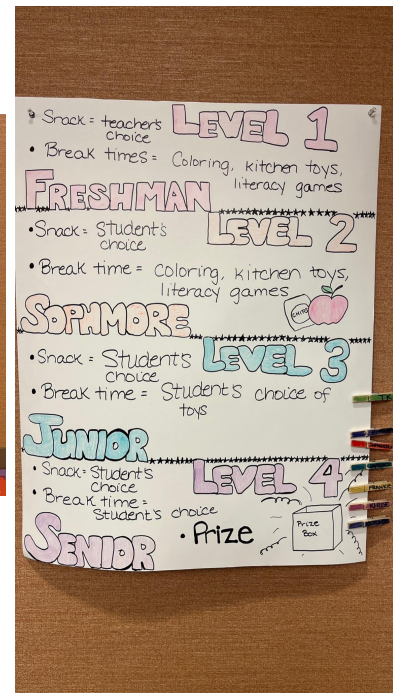 • Snack = teacher's choice
LEVEL 1
• Break times = Coloring, kitchen toys, literacy games
FRESHMAN
• Snack = Student's choice
LEVEL 2
• Break time = coloring, kitchen toys, literacy games
CHIPS
SOPHMORE
• Snack = Student's choice
LEVEL 3
• Break time = Student's choice of toys
JUNIOR
• Snack = Student's choice
LEVEL 4
• Break time = Student's choice
• Prize
Prize Box
SENIOR